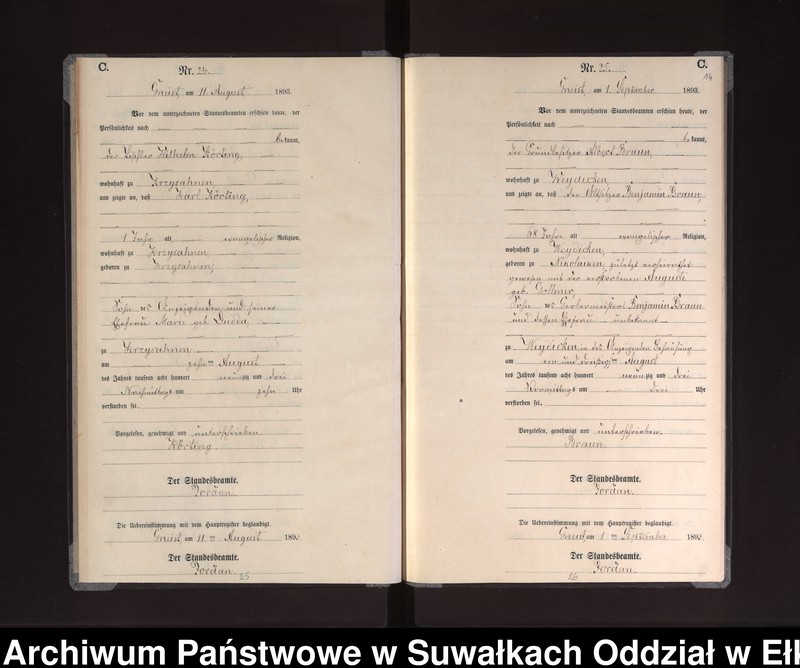 C.
Nr. 24.
am 11. August 1893.
Vor dem unterzeichneten Standesbeamten erschien heute, der
Persönlichkeit nach
be kannt,
der Wilhelm Körting,
wohnhaft zu Krzysahnen,
und zeigte an, daß Karl Körting,
1 Jahr alt, evangelischer Religion,
wohnhaft zu Krzysahnen,
geboren zu Krzysahnen,
Sohn des Anzeigenden und seiner
Ehefrau Marie geb. Dudda,
zu Krzysahnen
am zehnten August
des Jahres tausend acht hundert neunzig und drei
Nachmittags um zehn Uhr
verstorben sei.
Vorgelesen, genehmigt und unterschrieben.
Körting.
Der Standesbeamte.
Jordan.
Die Uebereinstimmung mit dem Hauptregister beglaubigt.
am 11 ten August 1893.
Der Standesbeamte.
Jordan.
25
C.
14
Nr. 25.
am 1. September 1893.
Vor dem unterzeichneten Standesbeamten erschien heute, der
Persönlichkeit nach
be kannt,
der Grundbesitzer Albert Braun,
wohnhaft zu Weydicken,
und zeigte an, daß der Altsitzer Benjamin Braun,
68 Jahre alt evangelischer Religion,
wohnhaft zu Weydicken,
geboren zu Nikolaiken, zuletzt verheirathet
gewesen mit der verstorbenen Auguste
geb.
Sohn des Benjamin Braun
und dessen Ehefrau unbekannt
zu Weydicken in des Anzeigenden Behausung
am ein und dreißigsten August
des Jahres tausend acht hundert neunzig und drei
Vormittags um drei Uhr
verstorben sei.
Vorgelesen, genehmigt und unterschrieben.
Braun.
Der Standesbeamte.
Jordan.
Die Uebereinstimmung mit dem Hauptregister beglaubigt.
am 1 ten September 1893.
Der Standesbeamte.
Jordan.
26
Archiwum Państwowe w Suwałkach Oddział w Eł